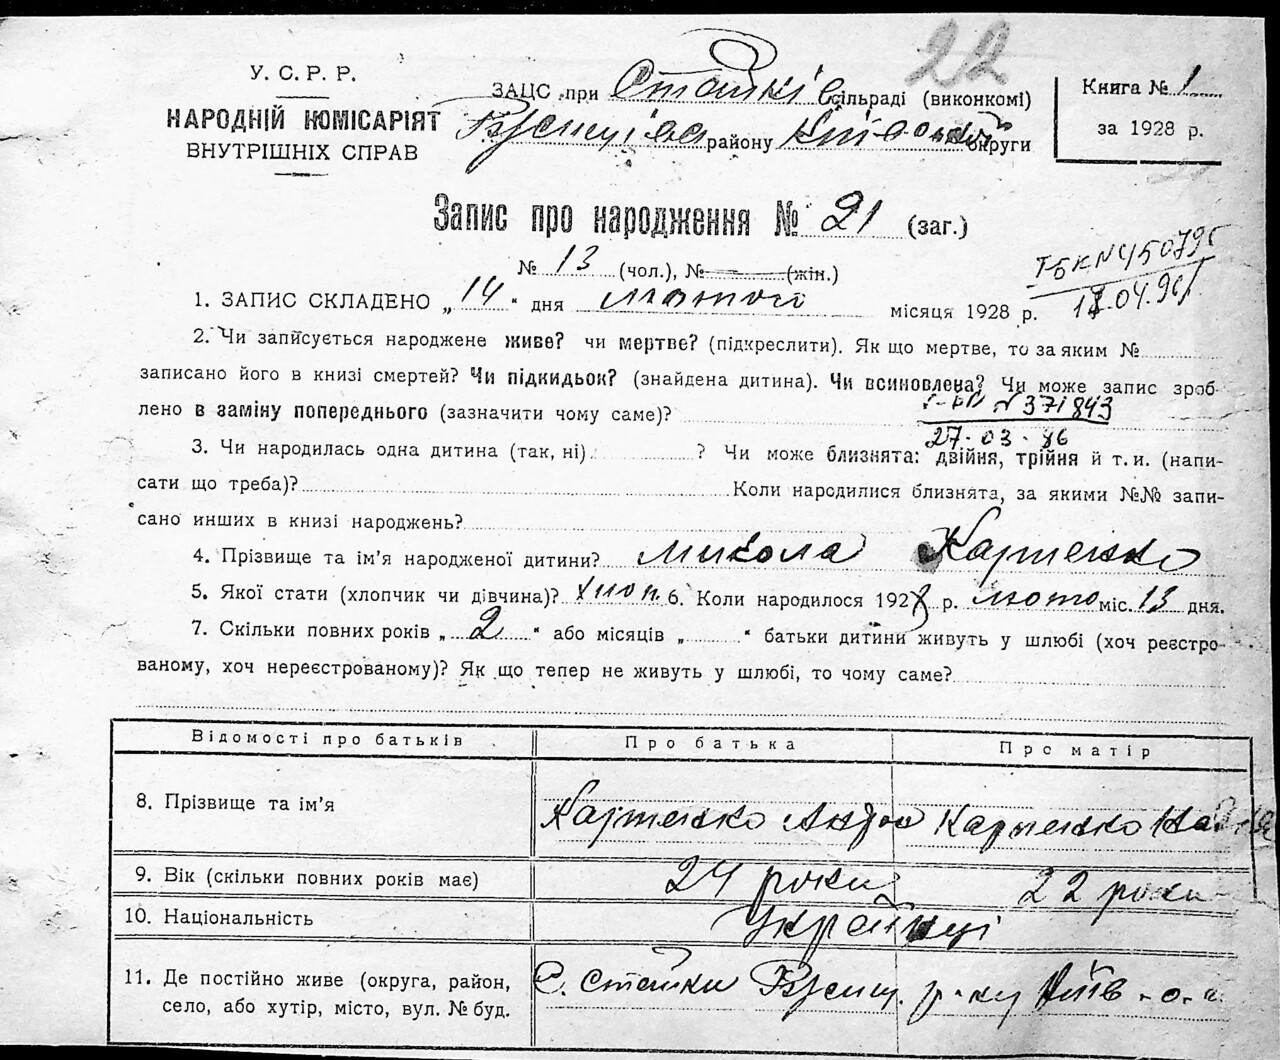 22
У. С. Р. Р.
НАРОДНІЙ КОМІСАРІЯТ
ВНУТРІШНІХ СПРАВ
ЗАЦС при Стайкі сільраді (виконкомі)
району округи
Книга № 1
за 1928 р.
Запис про народження № 21 (заг.)
№ 13 (чол.), № (жін.)
1. ЗАПИС СКЛАДЕНО „14“ дня лютого місяця 1928 р.
2. Чи записується народжене живе? чи мертве? (підкреслити). Як що мертве, то за яким №
записано його в книзі смертей? Чи підкидьок? (знайдена дитина). Чи всиновлена? Чи може запис зроб-
лено в заміну попереднього (зазначити чому саме)?
№ 371843
27-03-86
3. Чи народилась одна дитина (так, ні) ? Чи може близнята: двійня, трійня й т. и. (напи-
сати що треба)? Коли народилися близнята, за якими №№ запи-
сано инших в книзі народжень?
4. Прізвище та ім’я народженої дитини? Микола Карпенко
5. Якої стати (хлопчик чи дівчина)? хлоп. 6. Коли народилося 1928 р. лютого міс. 13 дня.
7. Скільки повних років „2“ або місяців „ “ батьки дитини живуть у шлюбі (хоч реєстро-
ваному, хоч нереєстрованому)? Як що тепер не живуть у шлюбі, то чому саме?
Відомості про батьків Про батька Про матір
8. Прізвище та ім’я Карпенко Карпенко
9. Вік (скільки повних років має) 24 роки 22 роки
10. Національність Українці
11. Де постійно живе (округа, район, с. Стайки р-ну Київ. о.
село, або хутір, місто, вул. № буд.